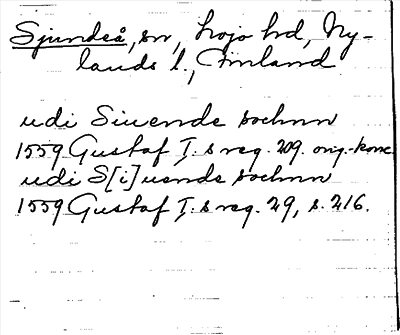 Sjundeå, sn, Lojo hd, Ny-
lands l., Finland
udi Siuende sochnn
1559 Gustaf I. s reg. 209. orig.-konc
udi S[i]uende sochnn
1559 Gustaf I. s reg. 29, s. 216.